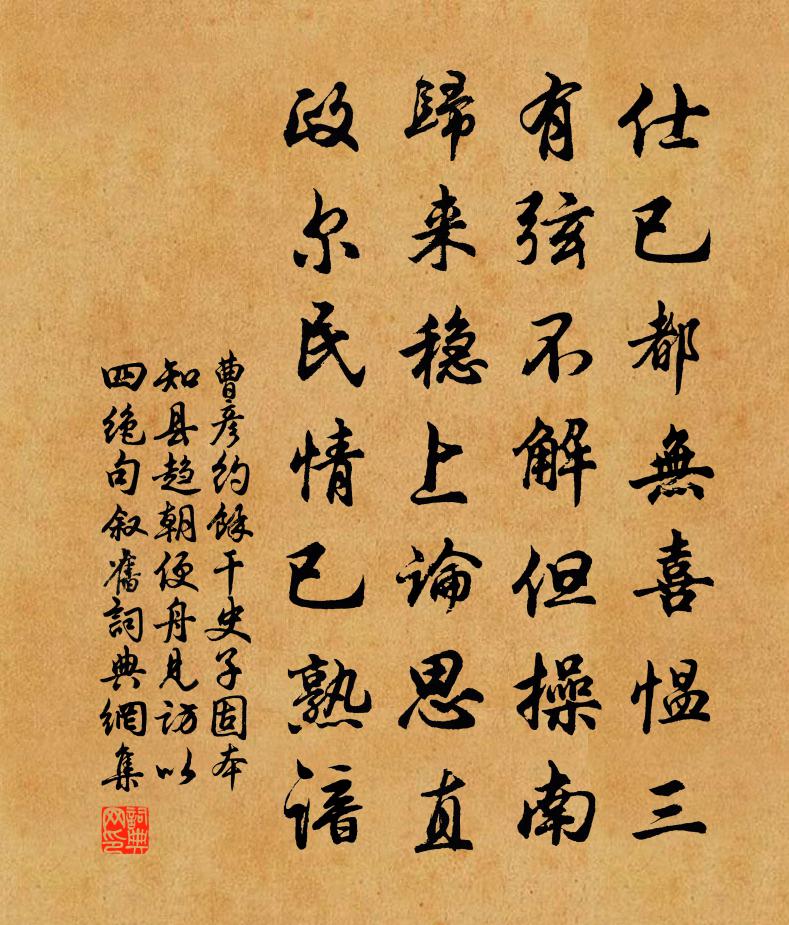 仕已都無喜愠三
有弦不解但操南
歸来稳上論思直
政尔民情已熟谙
曹彦约餘干史子固本
知县趋朝便舟見访以
四绝句叙舊詞典網集
詞典网印